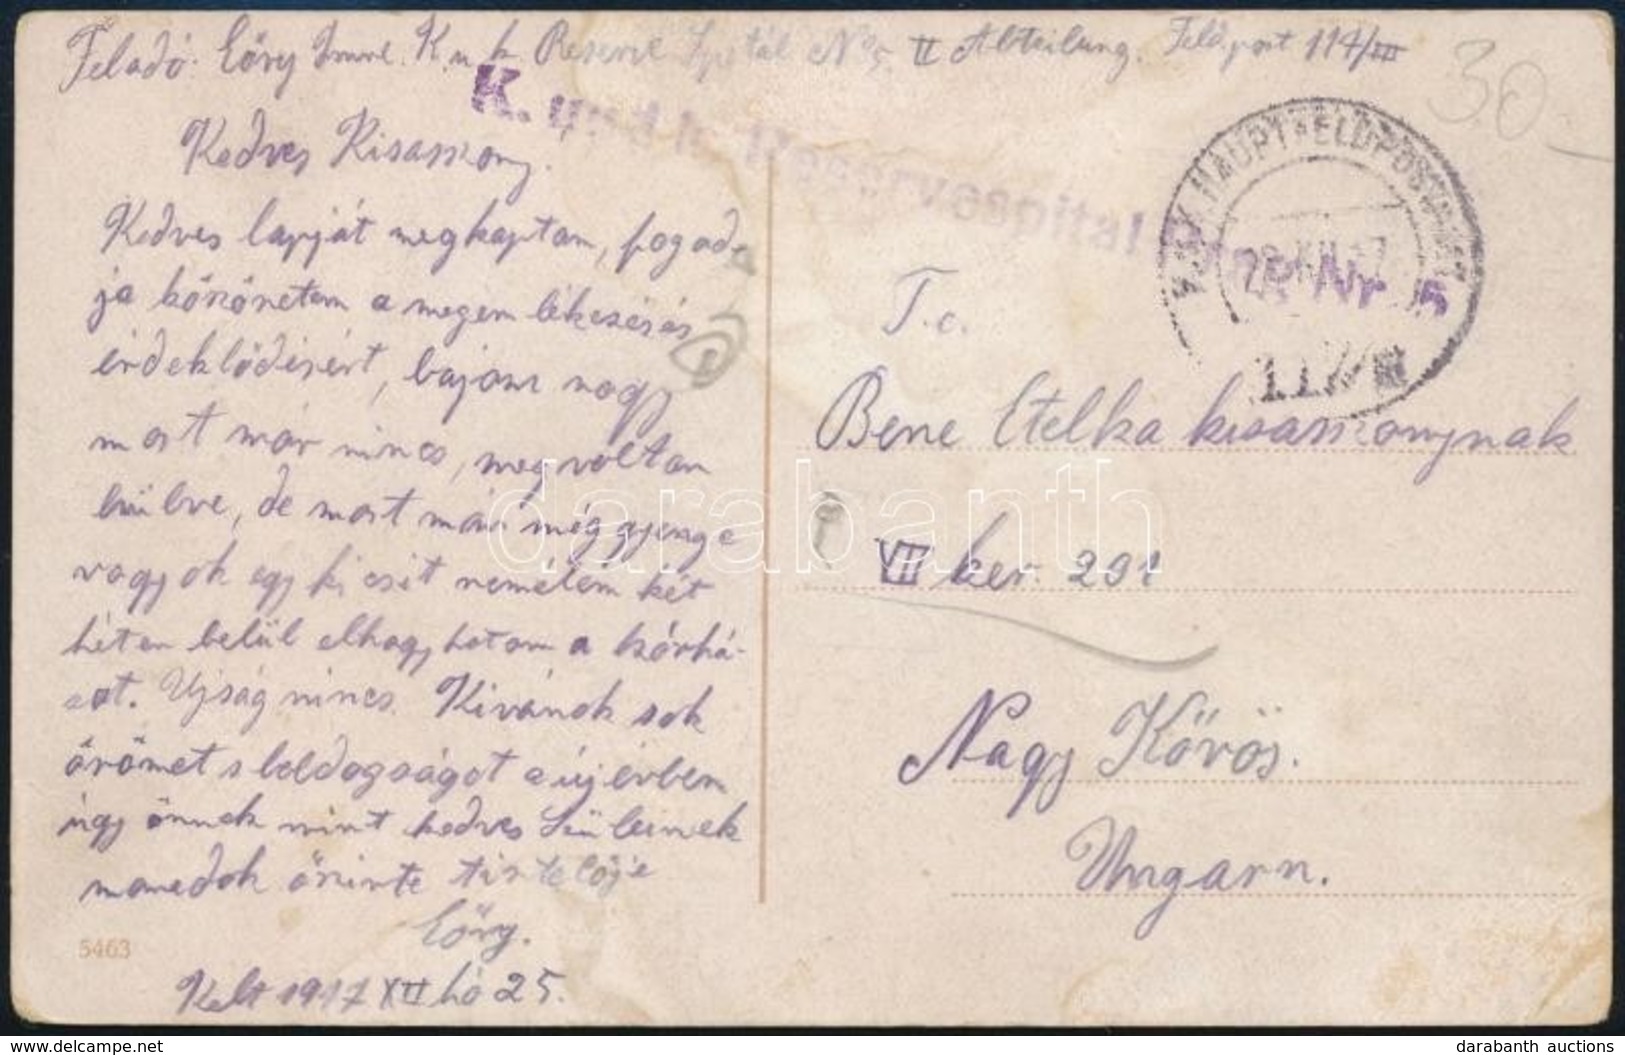 Feladó: Eőry Imre. K. u. k. Reserve Spitál No 5 II Abteilung. Feldpost 117/III
30
K. und k. Reservespital Nr. 5
K.u.K. HAUPTFELDPOSTAMT
28. XII. 17
117/III
Kedves Kisasszony.
Kedves lapját megkaptam, fogad-
ja köszönetem a megemlékezés és
érdeklődésért, bajom nagy
most már nincs, meg voltam
hülve, de most már még gyenge
vagyok egy kicsit remélem két
héten belül elhagyhatom a kórhá-
zat. Ujság nincs. Kivánok sok
örömet s boldogságot az új évben
úgy önnek mint kedves Szüleinek
maradok őszinte tisztelője
Eőry.
Kelt 1917 XII hó 25.
5463
T. c.
Bene Etelka kisasszonynak
VII ker. 291
Nagy Kőrös.
Ungarn.
darabanth
darabanth auctions
www.delcampe.net